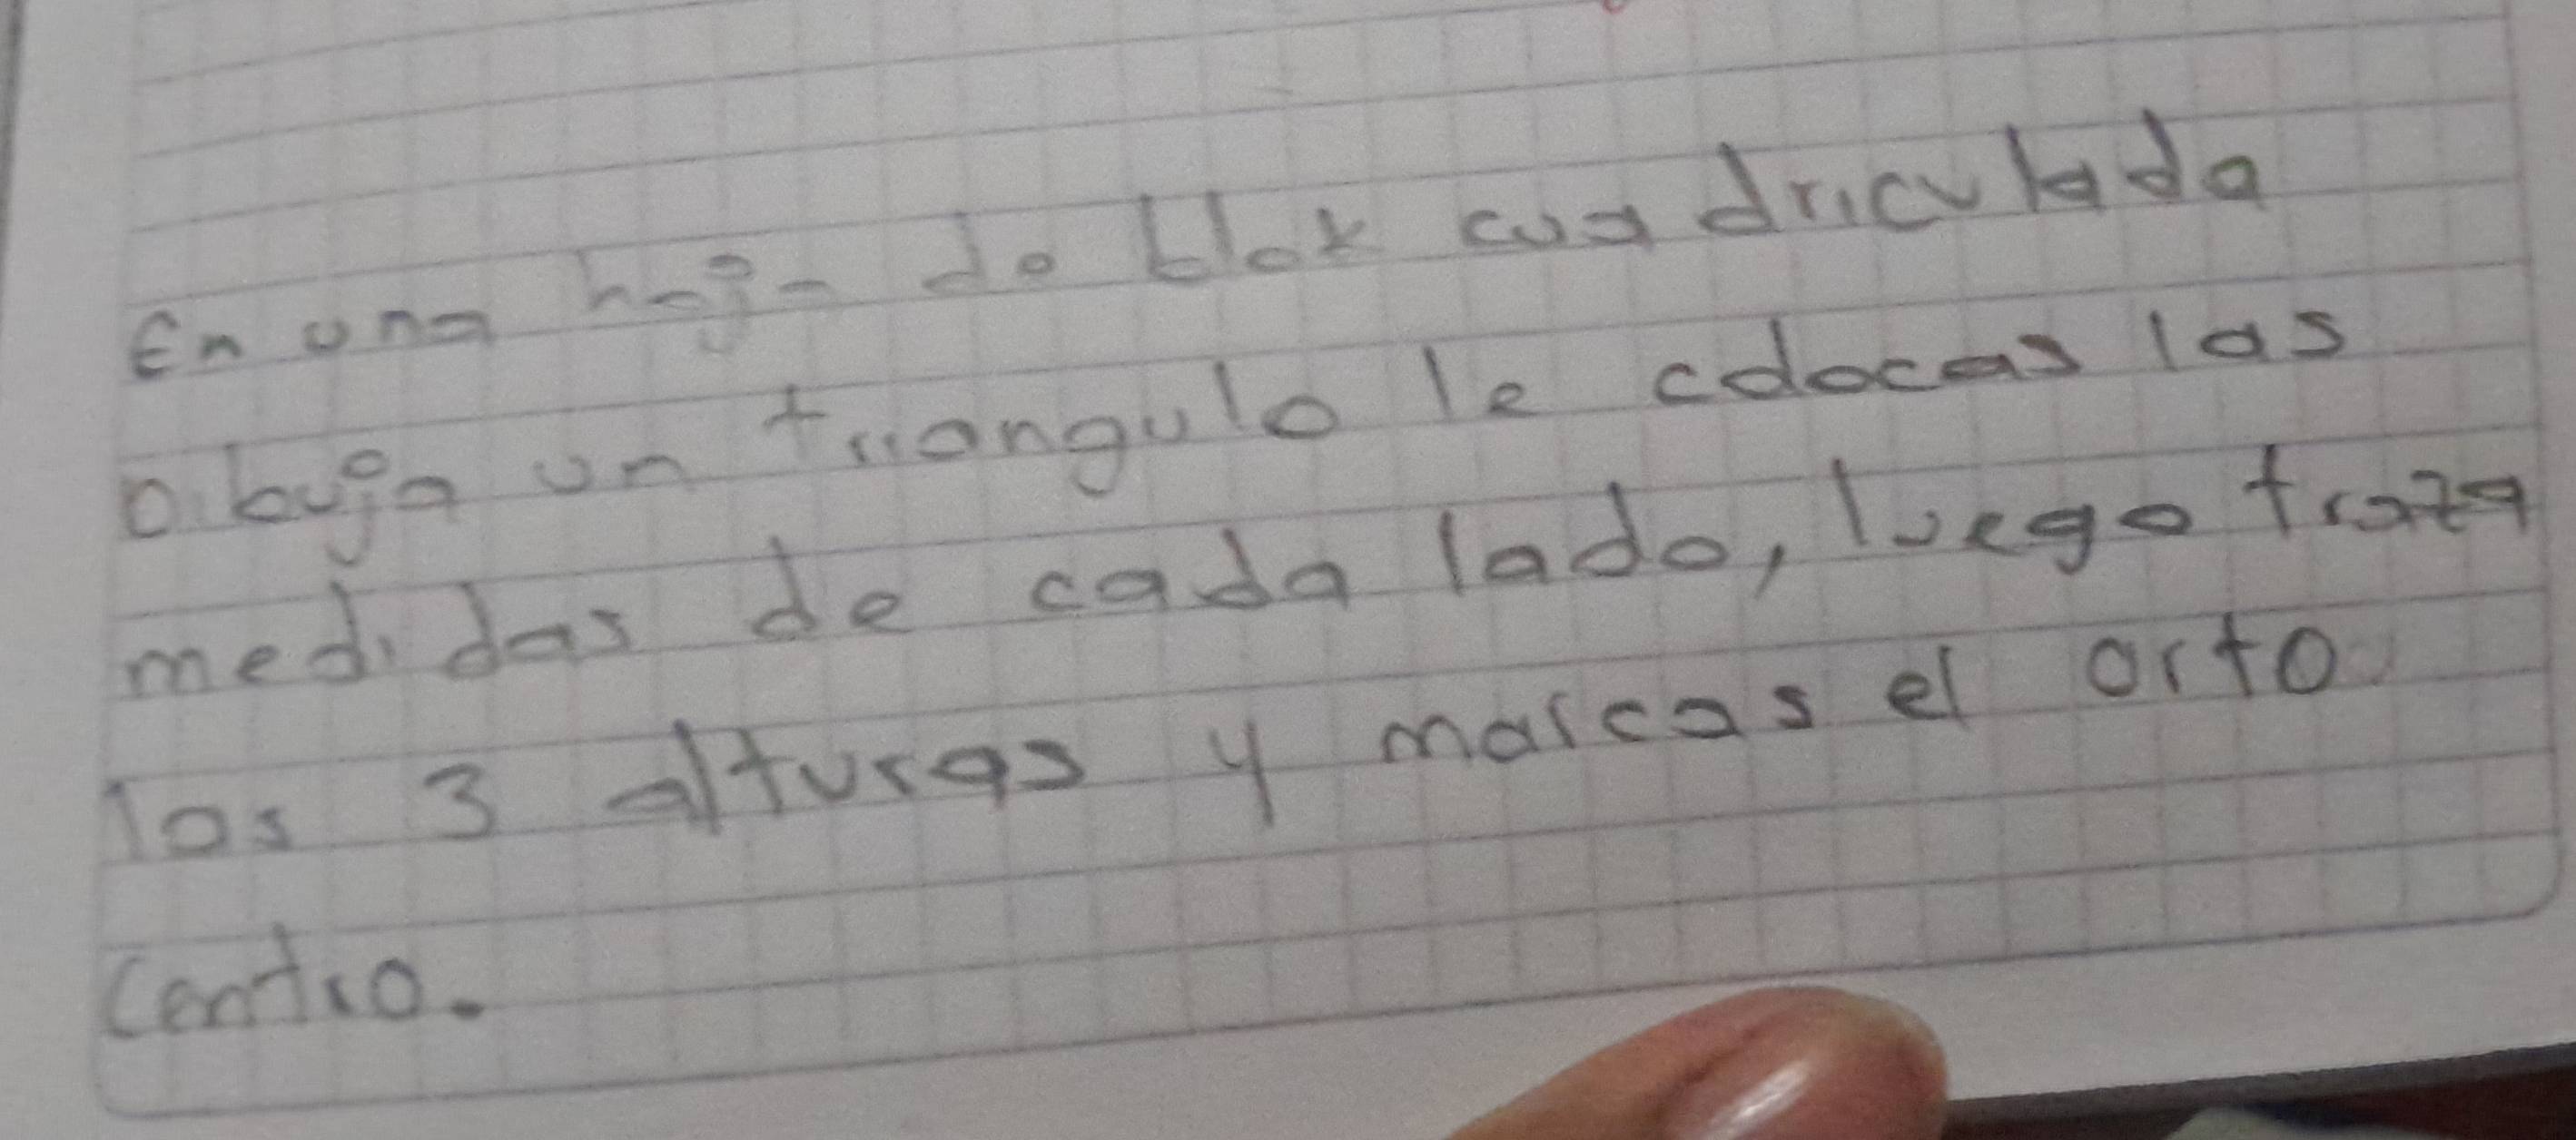 En una hoja de blok cuadriculada
Dibuja un triangulo le colocas las
medidas de cada lado, luego traza
las 3 alturas y marcas el orto
centro.